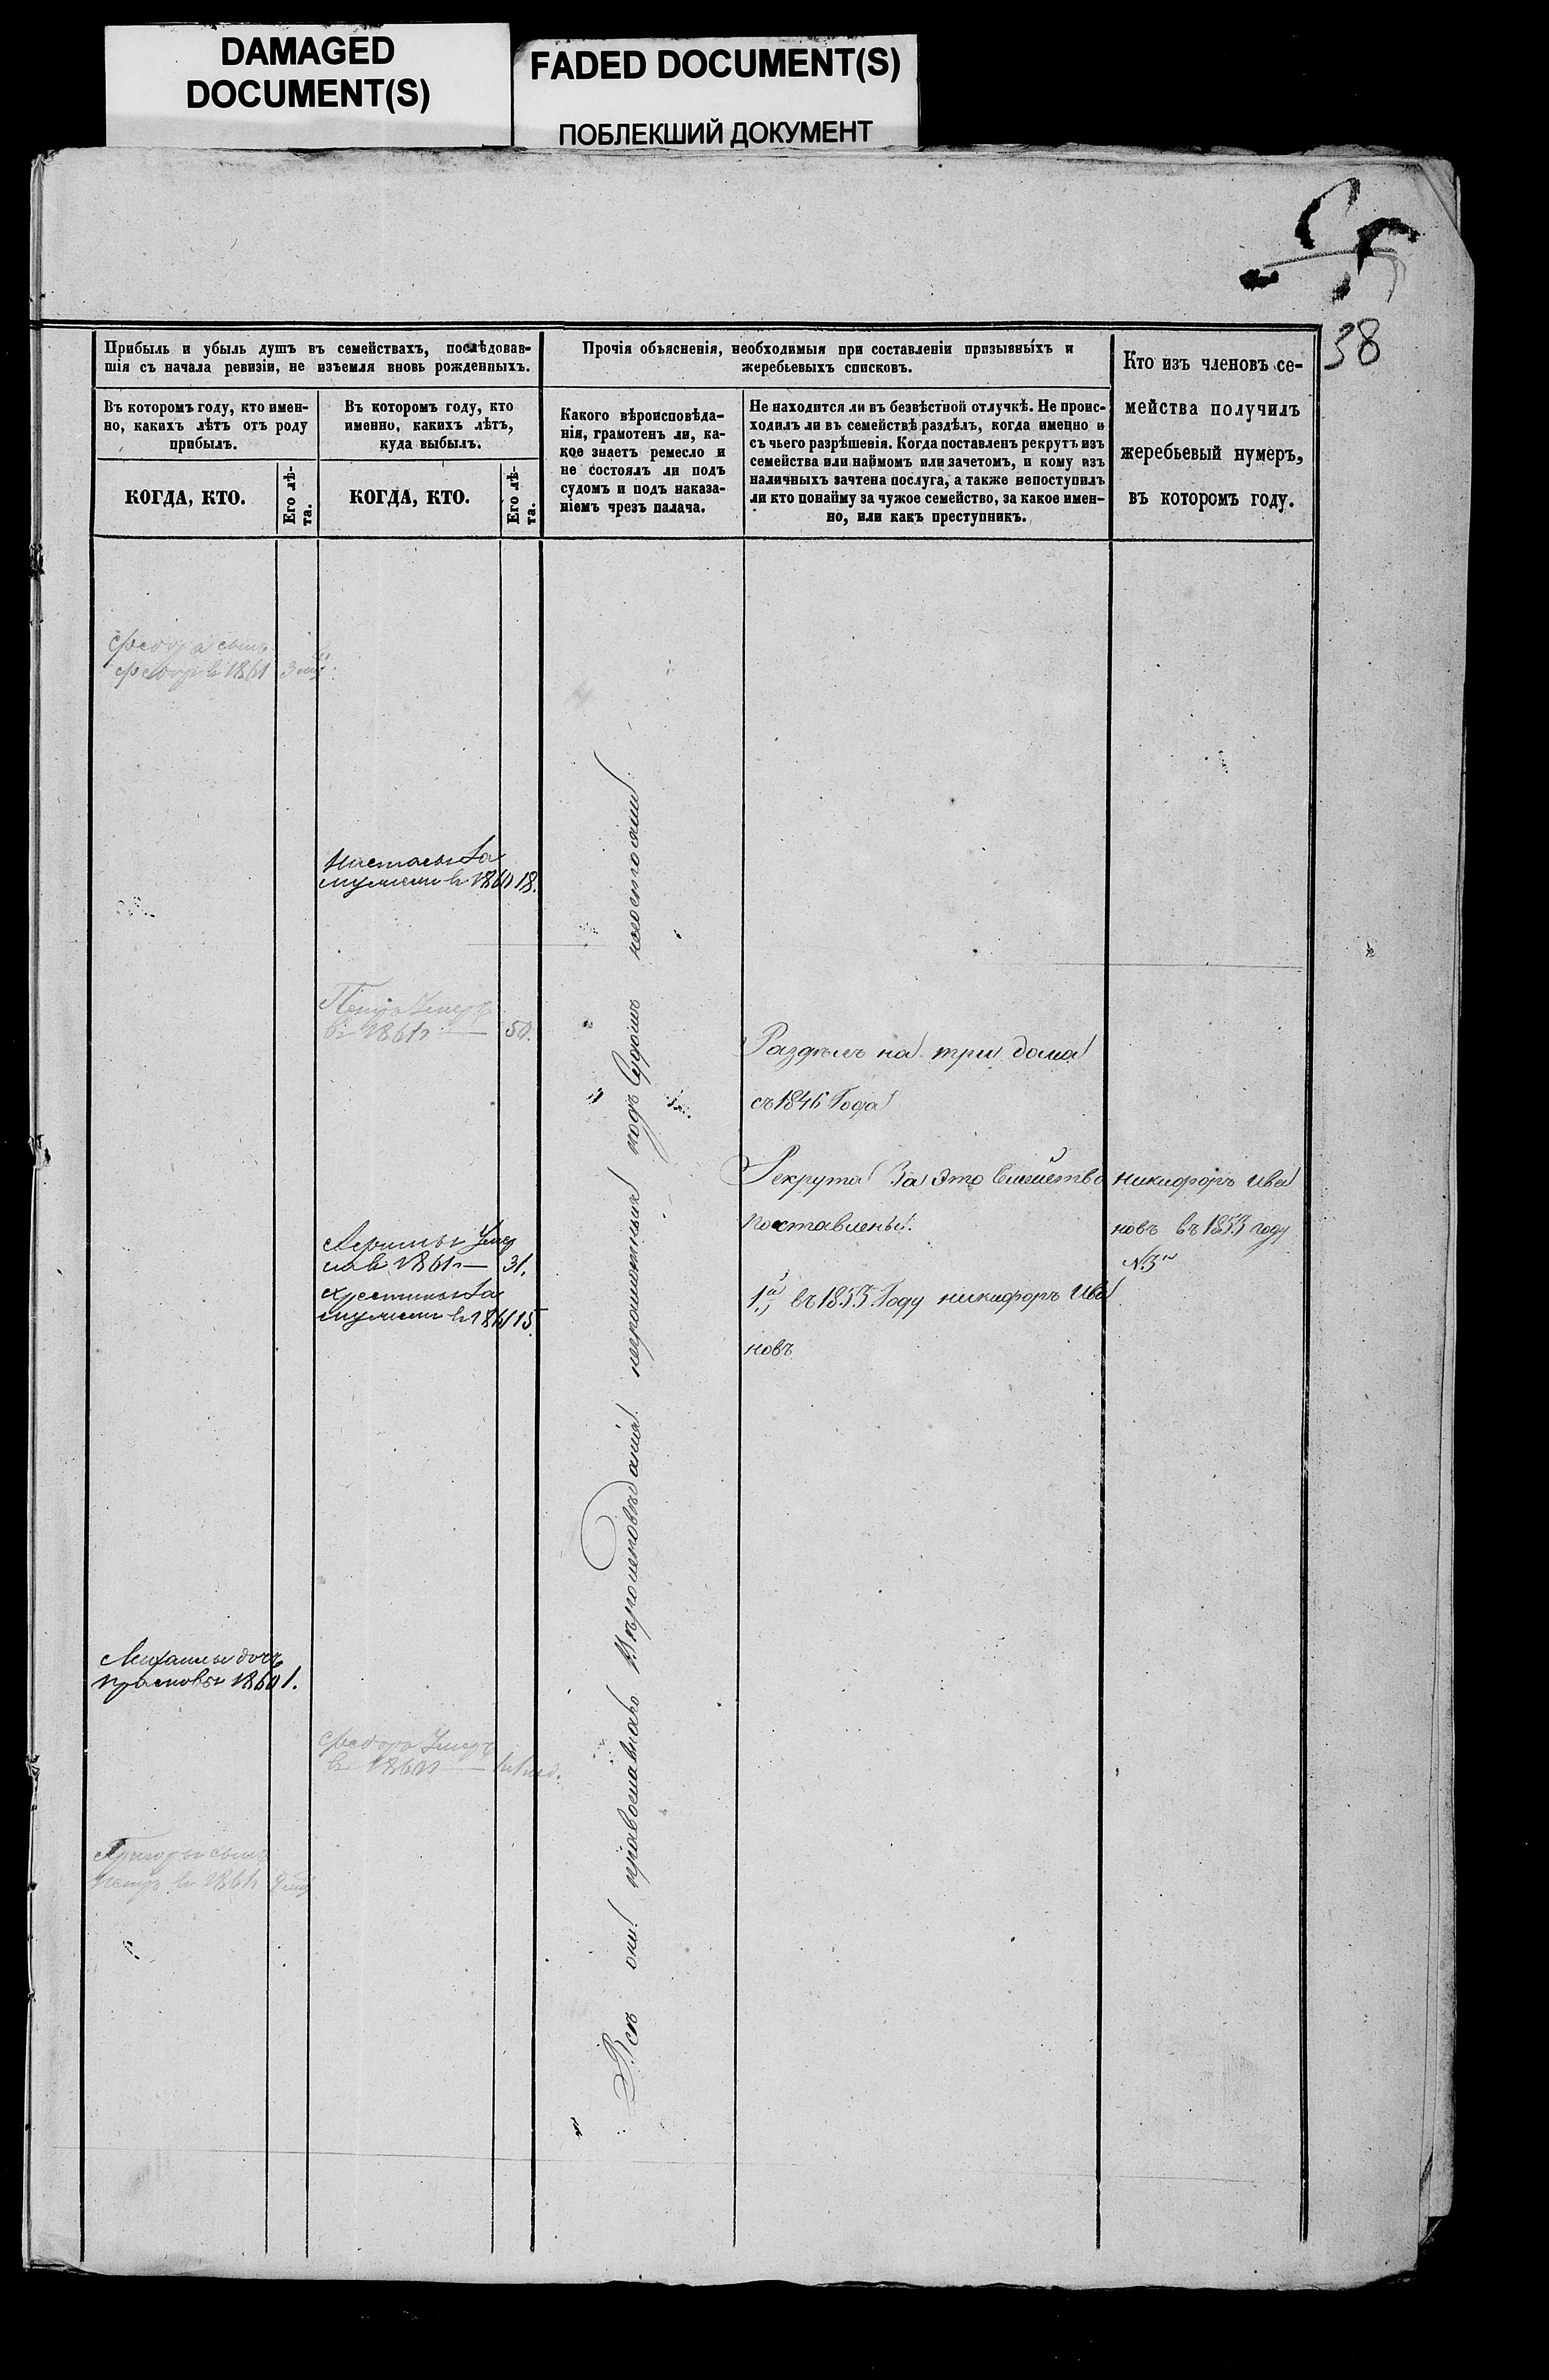 DAMAGED
DOCUMENT(S)
FADED DOCUMENT(S)
ПОБЛЕКШИЙ ДОКУМЕНТ
38
Прибыль и убыль душъ въ семействахъ, послѣдовав-
шія съ начала ревизіи, не изъемля вновь рожденныхъ.
Въ которомъ году, кто имен-
но, какихъ лѣтъ отъ роду
прибылъ.
КОГДА, КТО.
Его лѣ-
та.
Въ которомъ году, кто
именно, какихъ лѣтъ,
куда выбылъ.
КОГДА, КТО.
Его лѣ-
та.
Прочія объясненія, необходимыя при составленіи призывныхъ и
жеребьевыхъ списковъ.
Какого вѣроисповѣда-
нія, грамотенъ ли, ка-
кое знаетъ ремесло и
не состоялъ ли подъ
судомъ и подъ наказа-
ніемъ чрезъ палача.
Не находится ли въ безвѣстной отлучкѣ. Не проис-
ходилъ ли въ семействѣ раздѣлъ, когда именно и
съ чьего разрѣшенія. Когда поставленъ рекрутъ изъ
семейства или наймомъ или зачетомъ, и кому изъ
наличныхъ зачтена послуга, а также непоступилъ
ли кто понайму за чужое семейство, за какое имен-
но, или какъ преступникъ.
Кто изъ членовъ се-
мейства получилъ
жеребьевый нумеръ,
въ которомъ году.
Федора сынъ
Федоръ в 1861 3
Настасья За
мужем в 1860 18.
Петръ Умеръ
в 1861 50.
Умер
ла в 1861 31.
За
мужем в 1861 15.
дочь
1860 1.
Федоръ Умеръ
в 1860
Григорья сынъ
Петръ в 1861
Всѣ они православнаго Вѣроисповѣданія неграмотныя подъ Судомъ несостояли
Раздѣлъ на три дома
съ 1846 Года
Рекрута За это Симейство
поставлены.
1й въ 1853 Году никифоръ Ива
новъ
никифоръ Ива
новъ въ 1853 году
№ 3